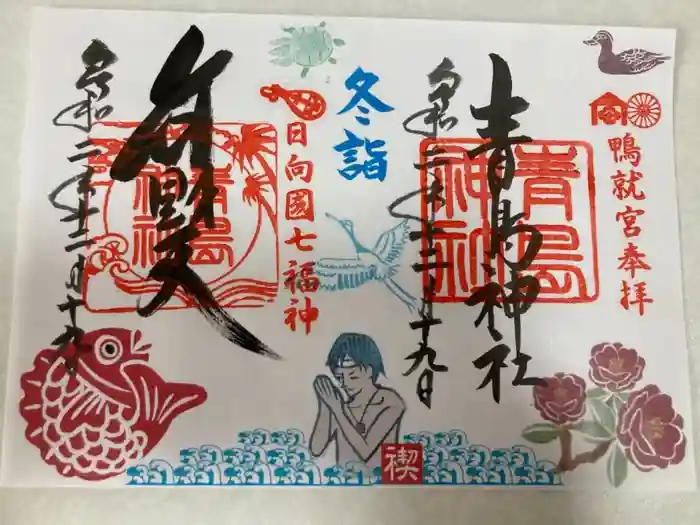 鴨就宮奉拝
青島神社
青島
神社
令和二年十二月十九日
冬詣
禊
日向國七福神
弁財天
青島
神社
令和二年十二月十九日